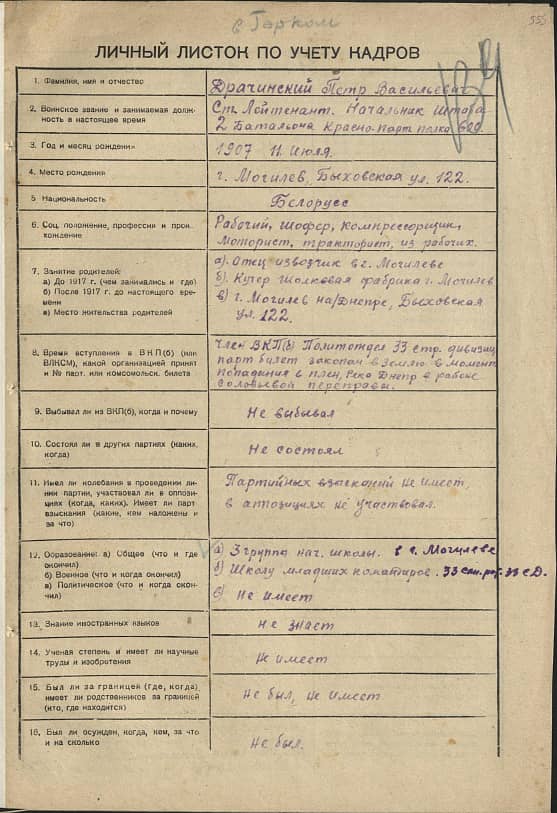 в Горком
ЛИЧНЫЙ ЛИСТОК ПО УЧЕТУ КАДРОВ
1. Фамилия, имя и отчество
Драчинский Петр Васильевич
2. Воинское звание и занимаемая долж-
ность в настоящее время
Ст. Лойтенант. Начальник Штаба
2 Батальона Красно-парт полка 620
3. Год и месяц рождения
1907 11 Июля.
4. Место рождения
г. Могилев, Быховская ул. 122.
5 Национальность
Белорусс
6. Соц. положение, профессии и прои.
хождение
Рабочий, шофер, компрессорщик,
моторист, тракторист, из рабочих.
7. Занятие родителей:
а) До 1917 г. (чем занимались и где)
б) После 1917 г. до настоящего вре-
мени
в) Место жительства родителей
а). Отец извозчик в г. Могилеве
б). Кучер шолковая фабрика г. Могилев
в) г. Могилев на/Днепре, Быховская
ул. 122.
8. Время вступления в ВКП(б) (или
ВЛКСМ), какой организацией принят
и № парт. или комсомольск. билета
Член ВКП(б) Политотдел 33 стр. дивизии
парт билет закопан в землю в момент
попадания в плен, река Днепр в районе
Соловьевой переправы.
9. Выбывал ли из ВКП(б), когда и почему
Не выбывал
10. Состоял ли в других партиях (каких,
когда)
Не состоял
11. Имел ли колебания в проведении ли-
нии партии, участвовал ли в оппози-
циях (когда, каких). Имеет ли парт
взыскания (какие, кем наложены и
за что)
Партийных взысканий не имеет,
в аппозициях не участвовал.
12. Образование: а) Общее (что и где
окончил)
б) Военное (что и когда окончил)
в) Политическое (что и когда окон-
чил)
а) 3 группа нач. школы. в г. Могилеве
б) Школу младших командиров. 33 СД.
в) не имеет
13. Знание иностранных языков
не знает
14. Ученая степень и имеет ли научные
труды и изобретения
Не имеет
15. Был ли за границей (где, когда)
имеет ли родственников за границей
(кто, где находится)
Не был, не имеет
16. Был ли осужден, когда, кем, за что
и на сколько
Не был.